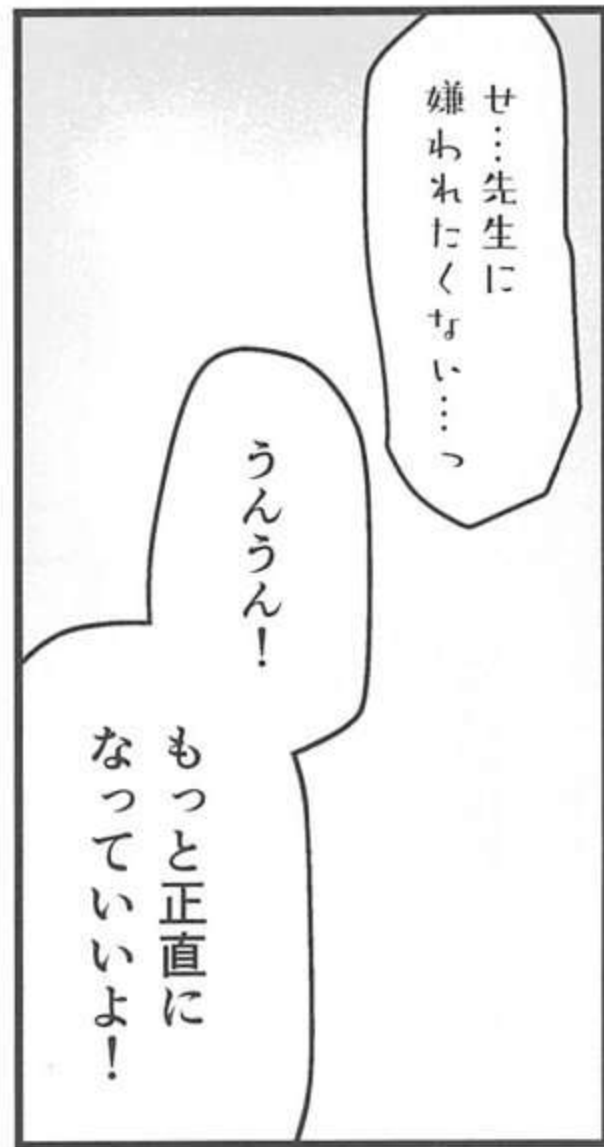 せ…先生に
嫌われたくない…っ
うんうん！
もっと正直に
なっていいよ！